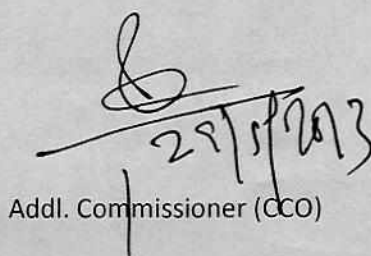 29/5/2013
Addl. Commissioner (CCO)